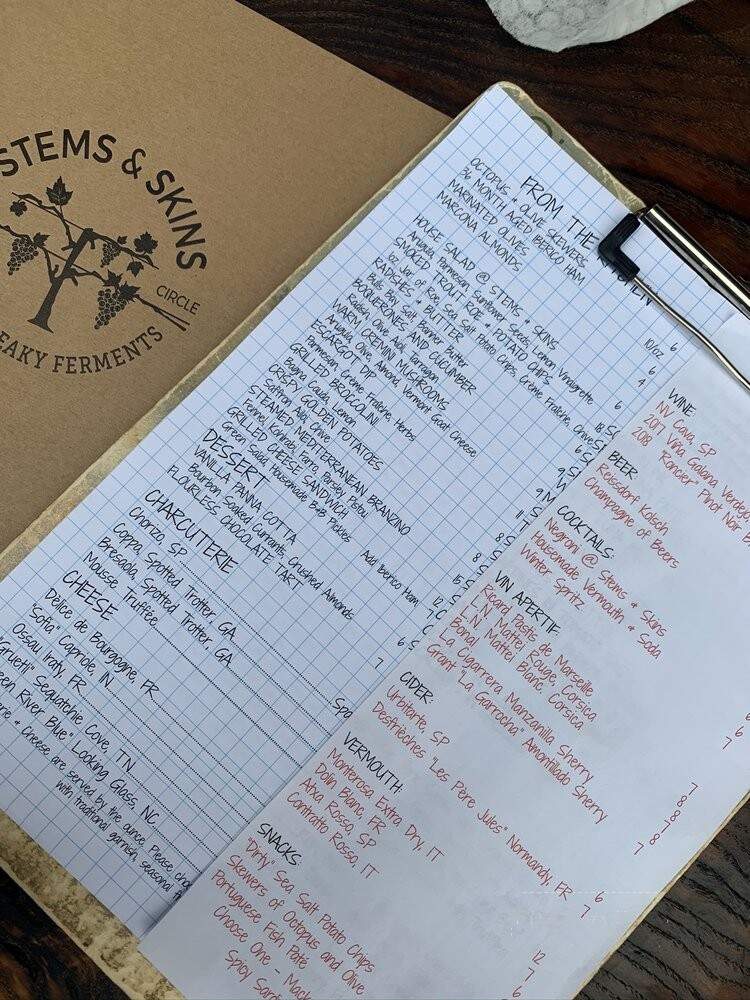 STEMS & SKINS
CIRCLE
EAKY FERMENTS
FROM THE
OCTOPUS + OLIVE SKEWERS 6
36 MONTH AGED IBERICO HAM 10/oz
MARINATED OLIVES 6
MARCONA ALMONDS 4
HOUSE SALAD @ STEMS & SKINS
Arugula, Parmesan, Sunflower Seeds, Lemon Vinaigrette
SMOKED TROUT ROE + POTATO CHIPS
1oz Jar of Roe, Sea Salt Potato Chips, Crème Fraîche, Chives
RADISHES + BUTTER
Bulls Bay Salt, Banner Butter
BOQUERONES AND CUCUMBER
Radish, Olive, Aioli, Tarragon
WARM CREMINI MUSHROOMS
Arugula, Olive, Almond, Vermont Goat Cheese
ESCARGOT DIP
Parmesan, Crème Fraîche, Herbs
GRILLED BROCCOLINI
Bagna Cauda, Lemon
CRISPY GOLDEN POTATOES
Saffron Aioli, Chive
STEAMED MEDITERRANEAN BRANZINO
Fennel, Kohlrabi, Farro, Parsley Pistou
GRILLED CHEESE SANDWICH
Green Salad, Housemade B+B Pickles
Add Iberico Ham
DESSERT
VANILLA PANNA COTTA
Bourbon Soaked Currants, Crushed Almonds
FLOURLESS CHOCOLATE TART
CHARCUTERIE
Chorizo, SP
Coppa, Spotted Trotter, GA
Bresaola, Spotted Trotter, GA
Mousse Truffée
CHEESE
Délice de Bourgogne, FR
"Sofia" Capriole, IN
Ossau Iraty, FR
"Gruetli" Sequatchie Cove, TN
een River Blue" Looking Glass, NC
erie & Cheese are served by the ounce. Please
with traditional garnish, seasonal
WINE
NV Cava, SP
2017 Viña Galana Verdejo
2018 "Roncier" Pinot Noir
BEER
Reissdorf Kolsch
Champagne of Beers
COCKTAILS:
Negroni @ Stems & Skins
Housemade Vermouth & Soda
Winter Spritz
VIN APERTIF
Ricard Pastis de Marseille
L.N. Mattei Rouge, Corsica
L.N. Mattei Blanc, Corsica
Bonal
La Cigarrera Manzanilla Sherry
Grant "La Garrocha" Amontillado Sherry
CIDER:
Urbitarte, SP
Desfrièches "Les Père Jules" Normandy, FR
VERMOUTH:
Monterosa Extra Dry, IT
Dolin Blanc, FR
Atxa Rosso, SP
Contratto Rosso, IT
SNACKS:
"Dirty" Sea Salt Potato Chips
Skewers of Octopus and Olive
Portuguese Fish Pate
Choose One - Mack
Spicy Sard